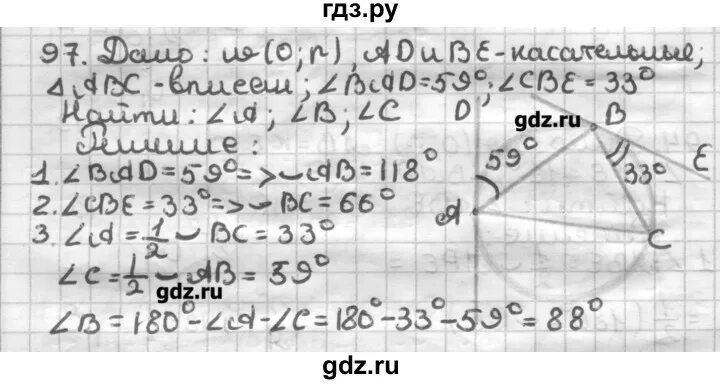 гдз.ру
97. Дано: w(O;r), AD и BE - касательные;
△ABC - впис.; ∠BAD=59°; ∠CBE=33°
Найти: ∠A; ∠B; ∠C
Решение:
1. ∠BAD=59°=>◡AB=118°
2. ∠CBE=33°=>◡BC=66°
3. ∠A=1/2◡BC=33°
∠C=1/2◡AB=59°
gdz.ru
∠B=180°-∠A-∠C=180°-33°-59°=88°
D
gdz.ru
B
59°
33°
E
A
C
gdz.ru